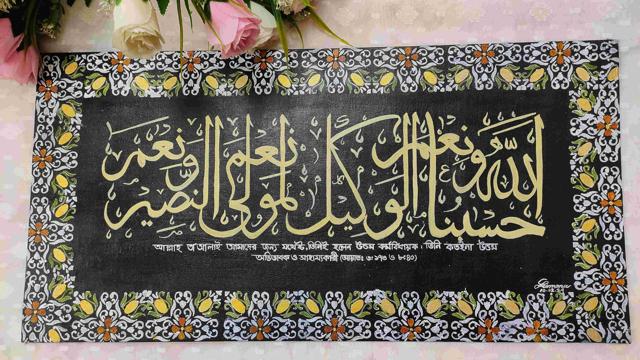 حسبنا الله ونعم الوكيل نعم المولى ونعم النصير
আল্লাহ তা'আলাই আমাদের জন্য যথেষ্ট, তিনিই হলেন উত্তম কর্মবিধায়ক। তিনি কতইনা উত্তম
অভিভাবক ও সাহায্যকারী (আয়াতঃ ৩:১৭৩ ও ৮:৪০)